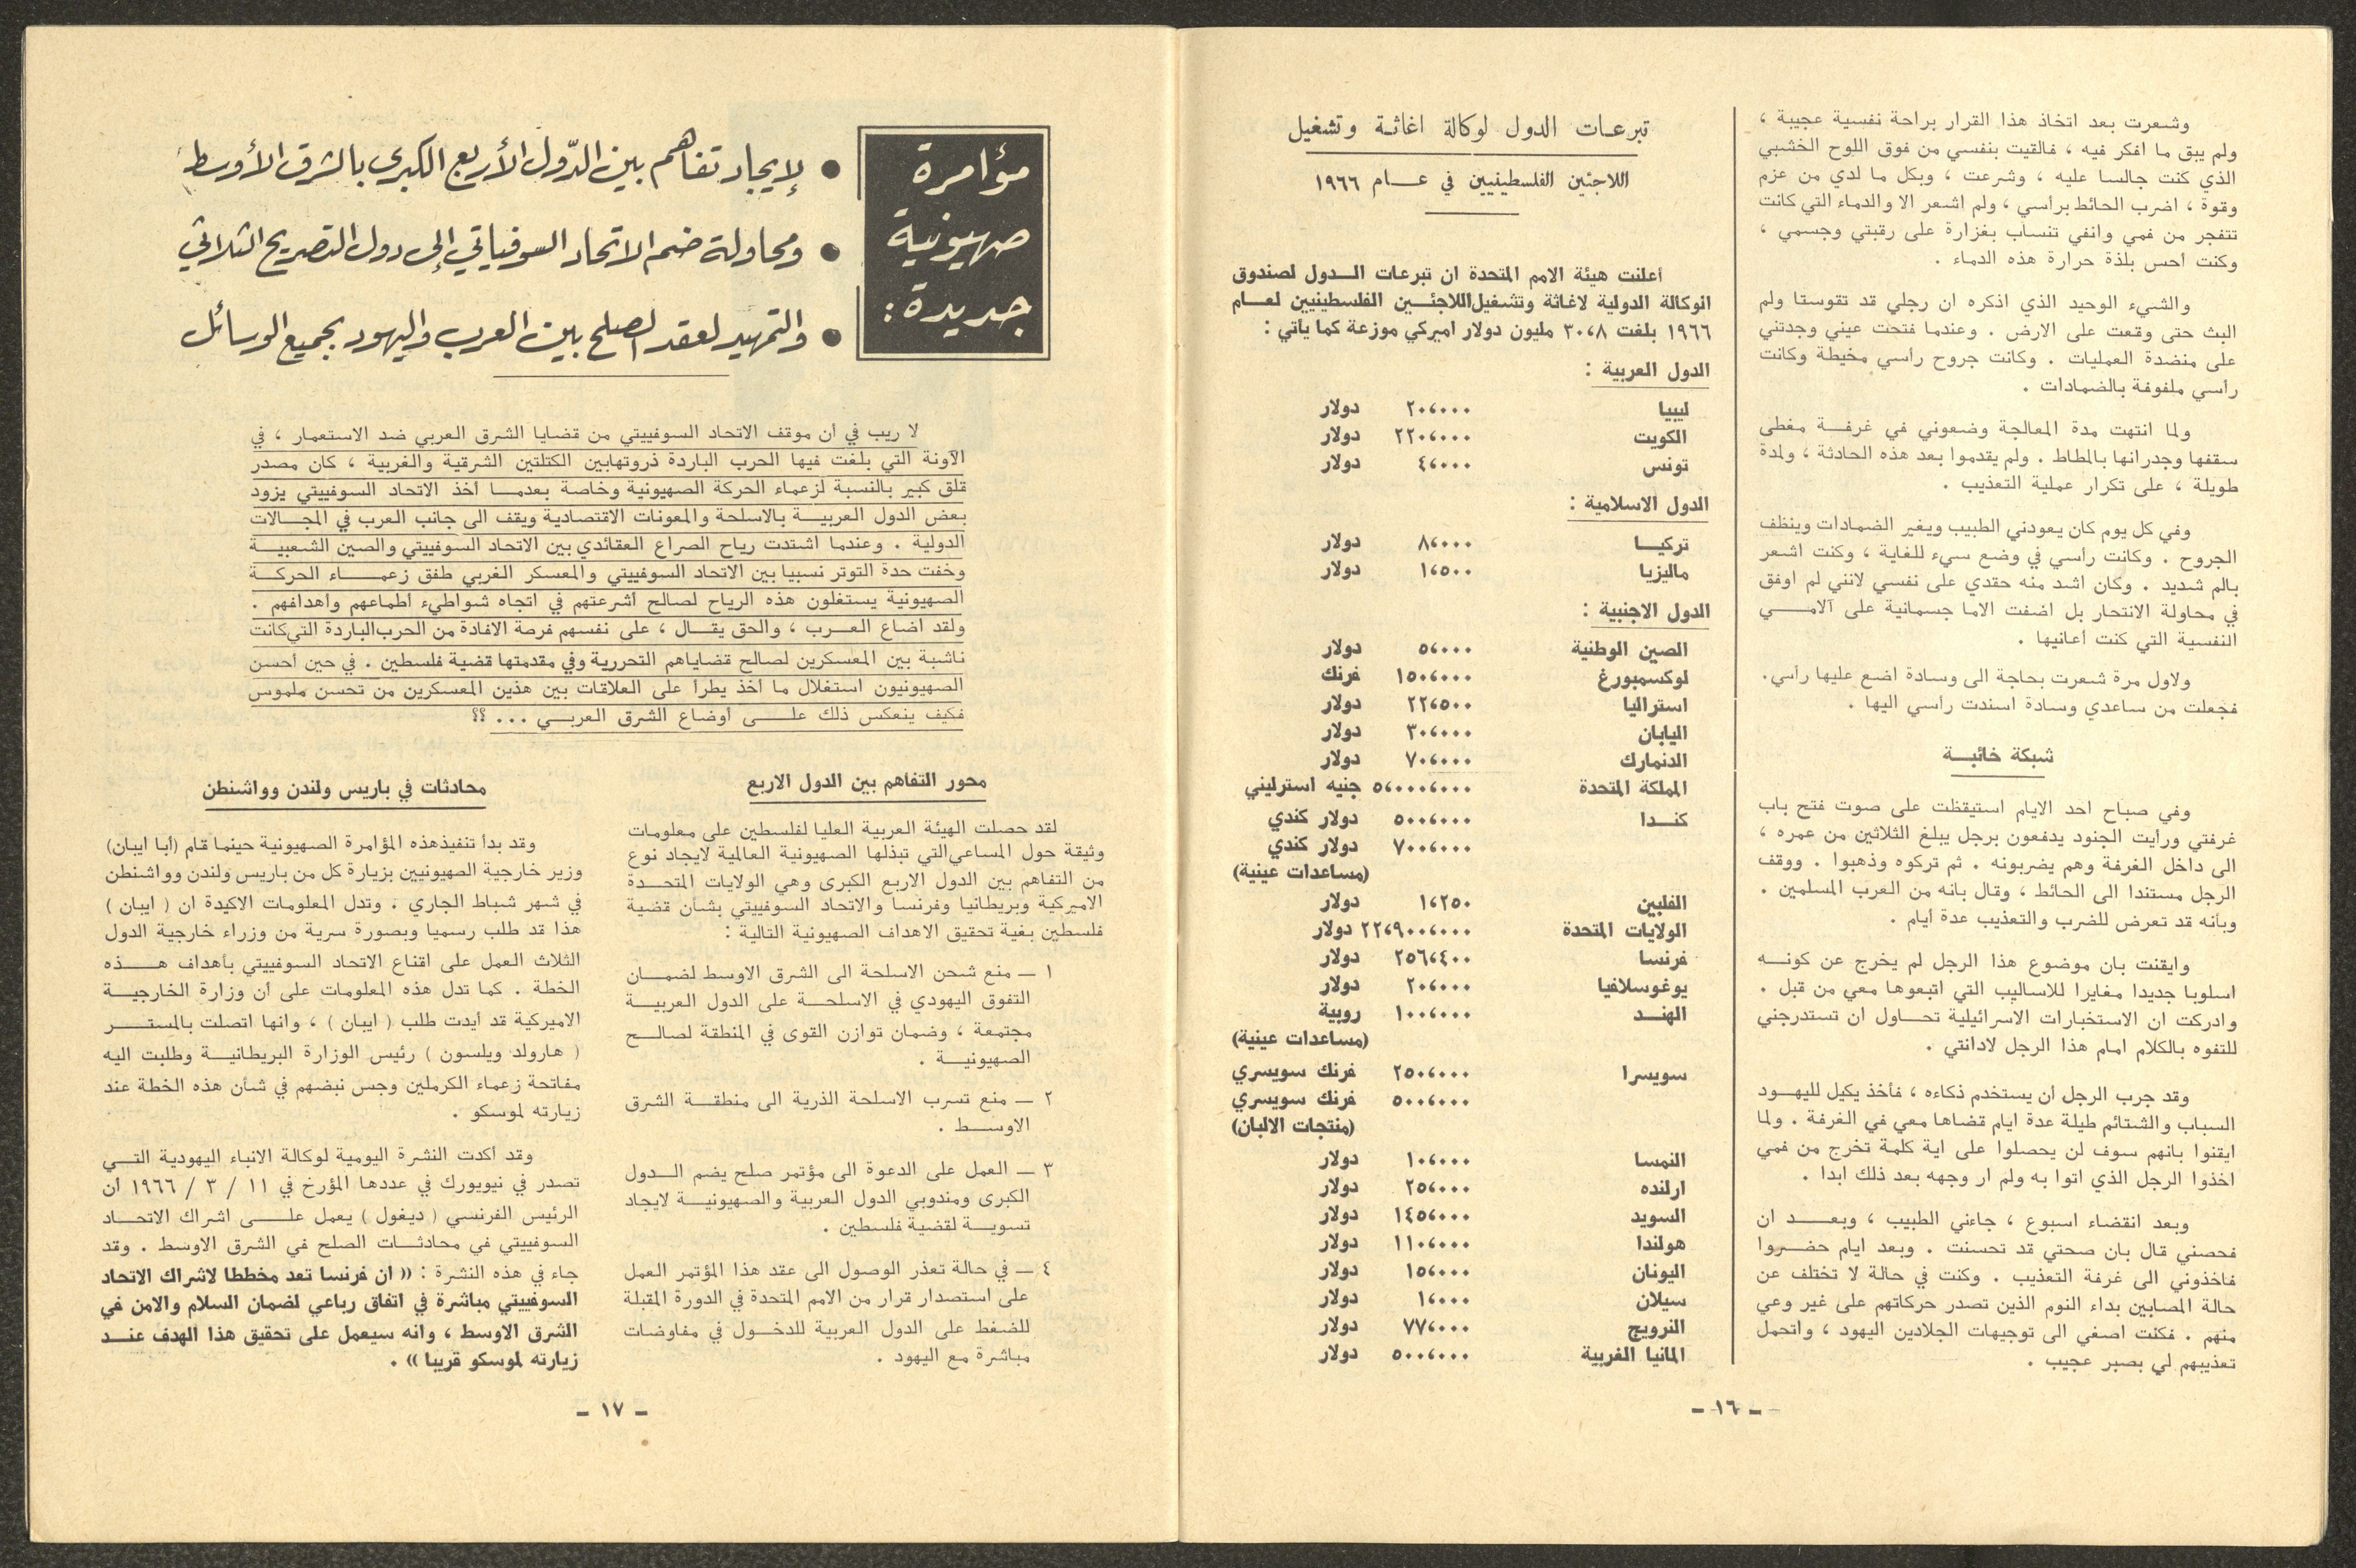 وشعرت بعد اتخاذ هذا القرار براحة نفسية عجيبة ،
ولم يبق ما افكر فيه ، فالقيت بنفسي من فوق اللوح الخشبي
الذي كنت جالسا عليه ، وشرعت ، وبكل ما لدي من عزم
وقوة ، اضرب الحائط براسي ، ولم اشعر الا والدماء التي كانت
تتفجر من فمي وانفي تنساب بغزارة على رقبتي وجسمي ،
وكنت احس بلذة حرارة هذه الدماء .
والشيء الوحيد الذي اذكره ان رجلي قد تقوستا ولم
البث حتى وقعت على الارض . وعندما فتحت عيني وجدتني
على منضدة العمليات . وكانت جروح رأسي مخيطة وكانت
رأسي ملفوفة بالضمادات .
ولما انتهت مدة المعالجة وضعوني في غرفــة مغطى
سقفها وجدرانها بالمطاط . ولم يقدموا بعد هذه الحادثة ، ولمدة
طويلة ، على تكرار عملية التعذيب .
وفي كل يوم كان يعودني الطبيب ويغير الضمادات وينظف
الجروح . وكانت رأسي في وضع سيء للغاية ، وكنت اشعر
بالم شديد . وكان اشد منه حقدي على نفسي لانني لم اوفق
في محاولة الانتحار بل اضفت الاما جسمانية على آلامــي
النفسية التي كنت أعانيها .
ولاول مرة شعرت بحاجة الى وسادة اضع عليها رأسي .
فجعلت من ساعدي وسادة اسندت رأسي اليها .
شبكة خائبــة
وفي صباح احد الايام استيقظت على صوت فتح باب
غرفتي ورأيت الجنود يدفعون برجل يبلغ الثلاثين من عمره ،
الى داخل الغرفة وهم يضربونه . ثم تركوه وذهبوا . ووقف
الرجل مستندا الى الحائط ، وقال بانه من العرب المسلمين .
وبأنه قد تعرض للضرب والتعذيب عدة ايام .
وايقنت بان موضوع هذا الرجل لم يخرج عن كونــه
اسلوبا جديدا مغايرا للاساليب التي اتبعوها معي من قبل .
وادركت ان الاستخبارات الاسرائيلية تحــاول ان تستدرجني
للتفوه بالكلام امام هذا الرجل لادانتي .
وقد جرب الرجل أن يستخدم ذكاءه ، فأخذ يكيل لليهــود
السباب والشتائم طيلة عدة ايام قضاها معي في الغرفة . ولما
ايقنوا بانهم سوف لن يحصلوا على اية كلمة تخرج من فمي
اخذوا الرجل الذي اتوا به ولم ار وجهه بعد ذلك ابدا .
وبعد انقضاء اسبوع ، جاءني الطبيب ، وبعــد ان
فحصني قال بان صحتي قد تحسنت . وبعد ايام حضــروا
فاخذوني الى غرفة التعذيب . وكنت في حالة لا تختلف عن
حالة المصابين بداء النوم الذين تصدر حركاتهم على غير وعي
منهم . فكنت اصغي الى توجيهات الجلادين اليهود ، واتحمل
تعذيبهم لي بصبر عجيب .
تبرعــات الدول لوكالة اغاثـة وتشغيل
اللاجئين الفلسطينيين في عــام ١٩٦٦
أعلنت هيئة الامم المتحدة ان تبرعات الــدول لصندوق
الوكالة الدولية لاغاثة وتشغيل اللاجئــين الفلسطينيين لعــام
١٩٦٦ بلغت ٣٠،٨ مليون دولار اميركي موزعة كما يأتي :
الدول العربية :
ليبيا ٢٠،٠٠٠ دولار
الكويت ٢٢٠،٠٠٠ دولار
تونس ٤،٠٠٠ دولار
الدول الاسلامية :
تركيــا ٨،٠٠٠ دولار
ماليزيا ١،٥٠٠ دولار
الدول الاجنبية :
الصين الوطنية ٥،٠٠٠ دولار
لوكسمبورغ ١٥٠،٠٠٠ فرنك
استراليا ٢٢،٥٠٠ دولار
اليابان ٣٠،٠٠٠ دولار
الدنمارك ٧٠،٠٠٠ دولار
المملكة المتحدة ٥،٠٠٠،٠٠٠ جنيه استرليني
كنــدا ٥٠٠،٠٠٠ دولار كندي
٧٠٠،٠٠٠ دولار كندي
(مساعدات عينية)
الفلبين ١،٢٥٠ دولار
الولايات المتحدة ٢٢،٩٠٠،٠٠٠ دولار
فرنسا ٢٥٦،٤٠٠ دولار
يوغوسلافيا ٢٠،٠٠٠ دولار
الهنــد ١٠٠،٠٠٠ روبية
(مساعدات عينية)
سويسرا ٢٥٠،٠٠٠ فرنك سويسري
٥٠٠،٠٠٠ فرنك سويسري
(منتجات الالبان)
النمسا ١٠،٠٠٠ دولار
ارلنده ٢٥،٠٠٠ دولار
السويد ١٤٥،٠٠٠ دولار
هولندا ١١٠،٠٠٠ دولار
اليونان ١٥،٠٠٠ دولار
سيلان ١،٠٠٠ دولار
النرويج ٧٧،٠٠٠ دولار
المانيا الغربية ٥٠٠،٠٠٠ دولار
- ١٦ -
مؤامرة
صهيونية
جديدة :
● لإيجاد تفاهم بين الدّول الأربع الكبرى بالشرق الأوسط
● ومحاولة ضم الاتحاد السوفياتي إلى دول التصريح الثلاثي
● والتمهيد لعقد الصلح بين العرب واليهود بجميع الوسائل
لا ريب في أن موقف الاتحاد السوفييتي من قضايا الشرق العربي ضد الاستعمار ، في
الآونة التي بلغت فيها الحرب الباردة ذروتها بين الكتلتين الشرقية والغربية ، كان مصدر
قلق كبير بالنسبة لزعماء الحركة الصهيونية وخاصة بعدمــا أخذ الاتحاد السوفييتي يزود
بعض الدول العربيــة بالاسلحة والمعونات الاقتصادية ويقف الى جانب العرب في المجــالات
الدولية . وعندما اشتدت رياح الصراع العقائدي بين الاتحاد السوفييتي والصين الشعبيــة
وخفت حدة التوتر نسبيا بين الاتحاد السوفييتي والمعسكر الغربي طفق زعمــاء الحركــة
الصهيونية يستغلون هذه الرياح لصالح أشرعتهم في اتجاه شواطيء أطماعهم واهدافهم .
ولقد اضاع العــرب ، والحق يقــال ، على نفسهم فرصة الافادة من الحرب الباردة التي كانت
ناشبة بين المعسكرين لصالح قضاياهم التحررية وفي مقدمتها قضية فلسطين . في حين أحسن
الصهيونيون استغلال ما أخذ يطرأ على العلاقات بين هذين المعسكرين من تحسن ملموس
فكيف ينعكس ذلك علــى أوضاع الشرق العربــي ... ؟؟
محور التفاهم بين الدول الاربع
لقد حصلت الهيئة العربية العليا لفلسطين على معلومات
وثيقة حول المساعي التي تبذلها الصهيونية العالمية لايجاد نوع
من التفاهم بين الدول الاربع الكبرى وهي الولايات المتحــدة
الاميركية وبريطانيا وفرنسا والاتحاد السوفييتي بشأن قضية
فلسطين بغية تحقيق الاهداف الصهيونية التالية :
١ ـ منع شحن الاسلحة الى الشرق الاوسط لضمــان
التفوق اليهودي في الاسلحــة على الدول العربيــة
مجتمعة ، وضمان توازن القوى في المنطقة لصالــح
الصهيونيــة .
٢ ـ منع تسرب الاسلحة الذرية الى منطقــة الشرق
الاوســط .
٣ ـ العمل على الدعوة الى مؤتمر صلح يضم الــدول
الكبرى ومندوبي الدول العربية والصهيونيــة لايجاد
تسويــة لقضية فلسطين .
٤ ـ في حالة تعذر الوصول الى عقد هذا المؤتمر العمل
على استصدار قرار من الامم المتحدة في الدورة المقبلة
للضغط على الدول العربية للدخــول في مفاوضات
مباشرة مع اليهود .
محادثات في باريس ولندن وواشنطن
وقد بدأ تنفيذ هذه المؤامرة الصهيونية حينما قام (أبا ايبان)
وزير خارجية الصهيونيين بزيارة كل من باريس ولندن وواشنطن
في شهر شباط الجاري . وتدل المعلومات الاكيدة ان ( ايبان )
هذا قد طلب رسميا وبصورة سرية من وزراء خارجية الدول
الثلاث العمل على اقناع الاتحاد السوفييتي بأهداف هــذه
الخطة . كما تدل هذه المعلومات على أن وزارة الخارجيــة
الاميركية قد أيدت طلب ( ايبان ) ، وانها اتصلت بالمستــر
( هارولد ويلسون ) رئيس الوزارة البريطانيــة وطلبت اليه
مفاتحة زعماء الكرملين وجس نبضهم في شأن هذه الخطة عند
زيارته لموسكو .
وقد اكدت النشرة اليومية لوكالة الانباء اليهودية التــي
تصدر في نيويورك في عددها المؤرخ في ١١ / ٣ / ١٩٦٦ ان
الرئيس الفرنسي ( ديغول ) يعمل علــى اشراك الاتحــاد
السوفييتي في محادثــات الصلح في الشرق الاوسط . وقد
جاء في هذه النشرة : (( ان فرنسا تعد مخططا لاشراك الاتحاد
السوفييتي مباشرة في اتفاق رباعي لضمان السلام والامن في
الشرق الاوسط ، وانه سيعمل على تحقيق هذا الهدف عنــد
زيارته لموسكو قريبا )) .
- ١٧ -